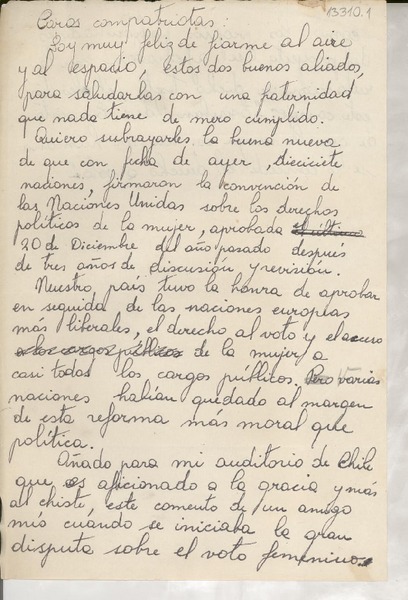 13310.1
Caros compatriotas:
Soy muy feliz de fiarme al aire
y al espacio, estos dos buenos aliados,
para saludarlas con una fraternidad
que nada tiene de mero cumplido.
Quiero subrayarles la buena nueva
de que con fecha de ayer, diecisiete
naciones, firmaron la convención de
las Naciones Unidas sobre los derechos
políticos de la mujer, aprobada el último
20 de Diciembre del año pasado después
de tres años de discusión y revisión.
Nuestro país tuvo la honra de aprobar
en seguida de las naciones europeas
más liberales, el derecho al voto y el acceso
a los cargos públicos de la mujer a
casi todos los cargos públicos. Pero varias
naciones habían quedado al margen
de esta reforma más moral que
política.
Añado para mi auditorio de Chile
que es aficionado a la gracia y más
al chiste, este comento de un amigo
mío cuando se iniciaba la gran
disputa sobre el voto femenino.